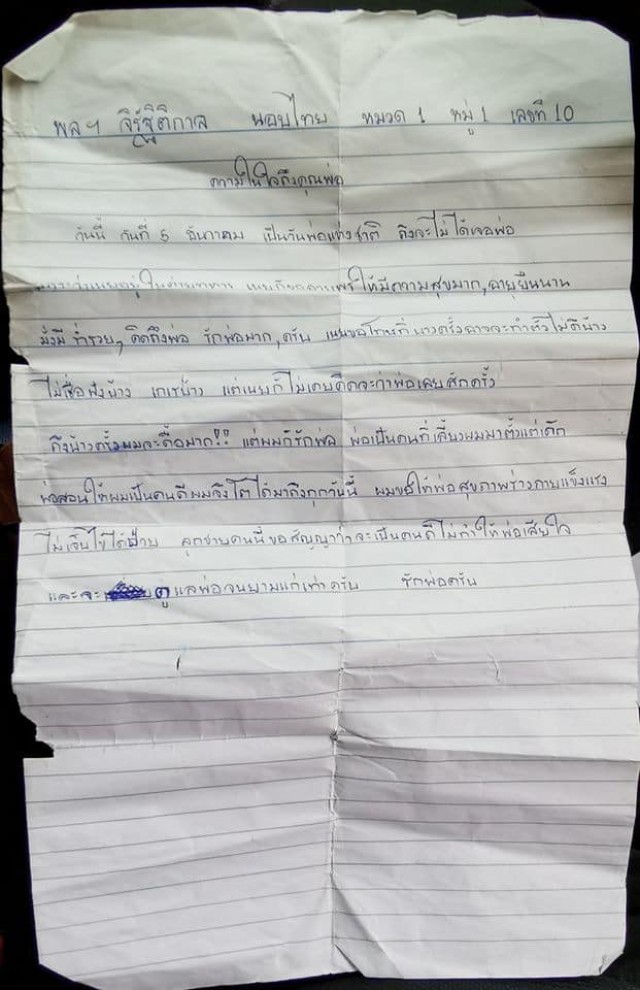 พลฯ จิรัฐิติกาล หอมไทย หมวด 1 หมู่ 1 เลขที่ 10
ความในใจถึงคุณพ่อ
วันนี้ วันที่ 5 ธันวาคม เป็นวันพ่อแห่งชาติ ถึงจะไม่ได้เจอพ่อ
ให้มีความสุขมาก, อายุยืนนาน
มั่งมี ร่ำรวย, คิดถึงพ่อ รักพ่อมาก, ครับ เนยขอโทษที่บางครั้งอาจจะทำตัวไม่ดีบ้าง
ไม่เชื่อฟังบ้าง เกเรบ้าง แต่เนยก็ไม่เคยคิดจะว่าพ่อเลยสักครั้ง
ถึงบางครั้งผมจะดื้อมาก!! แต่ผมก็รักพ่อ พ่อเป็นคนที่เลี้ยงผมมาตั้งแต่เด็ก
พ่อสอนให้ผมเป็นคนดีผมจึงโตได้มาถึงทุกวันนี้ ผมขอให้พ่อสุขภาพร่างกายแข็งแรง
ไม่เจ็บไข้ได้ป่วย ลูกชายคนนี้ขอสัญญาว่าจะเป็นคนดีไม่ทำให้พ่อเสียใจ
และจะ ดูแลพ่อจนยามแก่เฒ่าครับ รักพ่อครับ